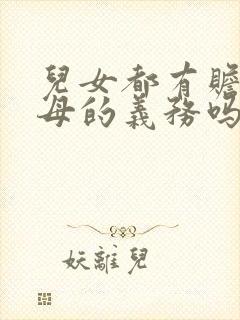 兒女都有贍
母的義務嗎
妖離兒